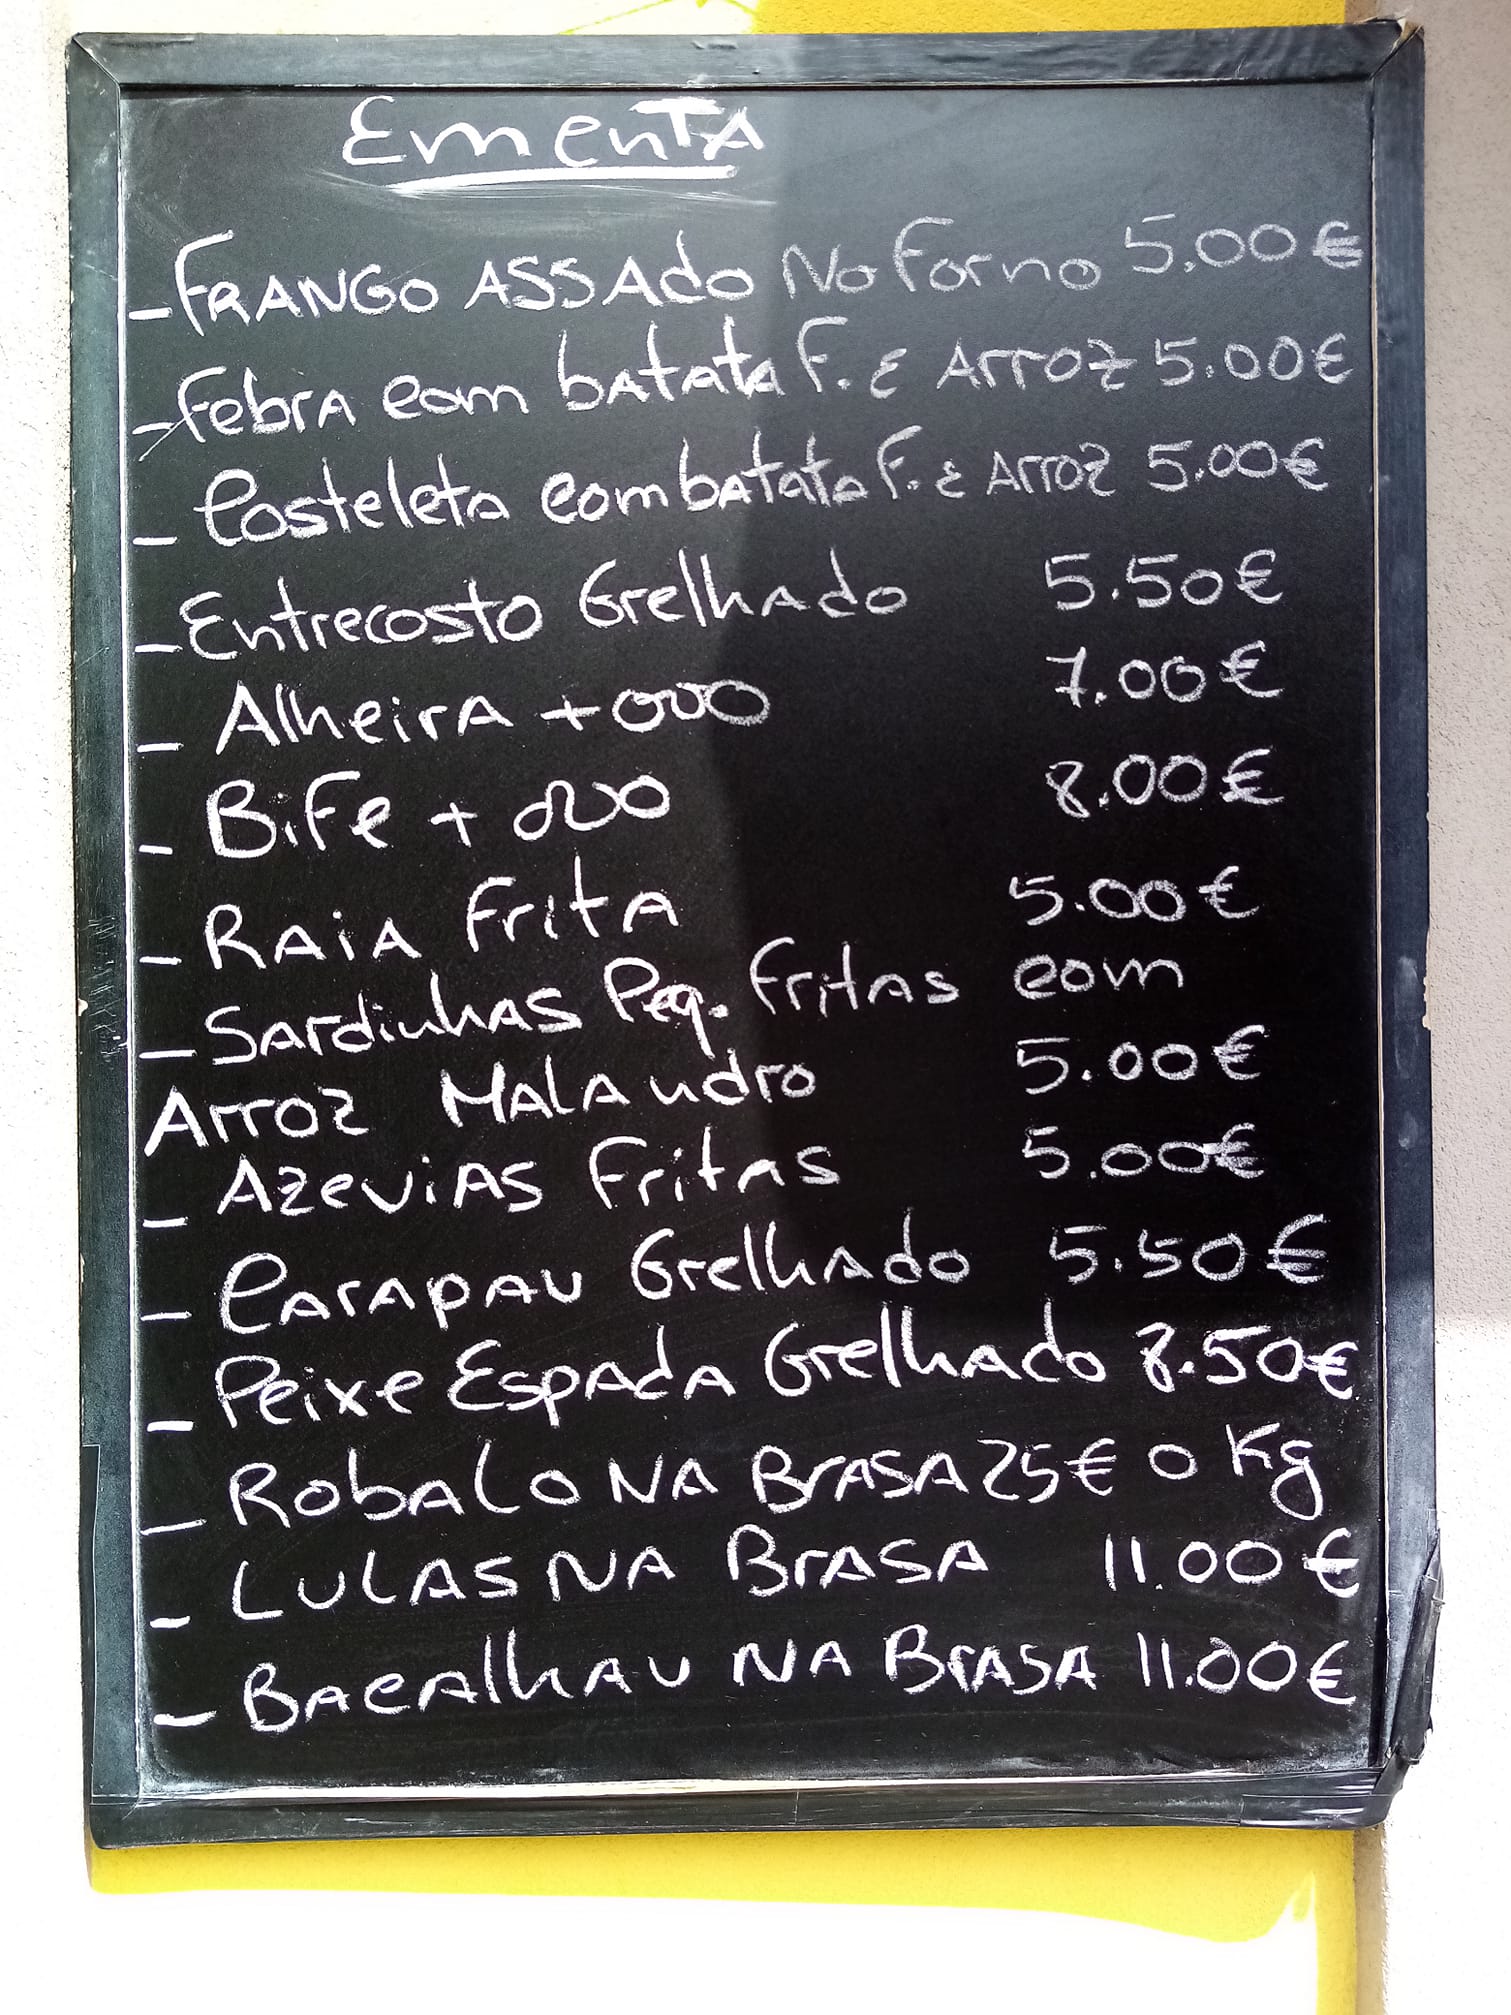 Ementa
- Frango Assado No Forno 5.00€
- Febra com batata F. E Arroz 5.00€
- Costeleta com batata F. E Arroz 5.00€
- Entrecosto Grelhado 5.50€
- Alheira + ovo 7.00€
- Bife + ovo 8.00€
- Raia Frita 5.00€
- Sardinhas Peq. Fritas com
Arroz Malandro 5.00€
- Azevias Fritas 5.00€
- Carapau Grelhado 5.50€
- Peixe Espada Grelhado 8.50€
- Robalo NA Brasa 25€ o Kg
- Lulas NA Brasa 11.00€
- Bacalhau NA Brasa 11.00€